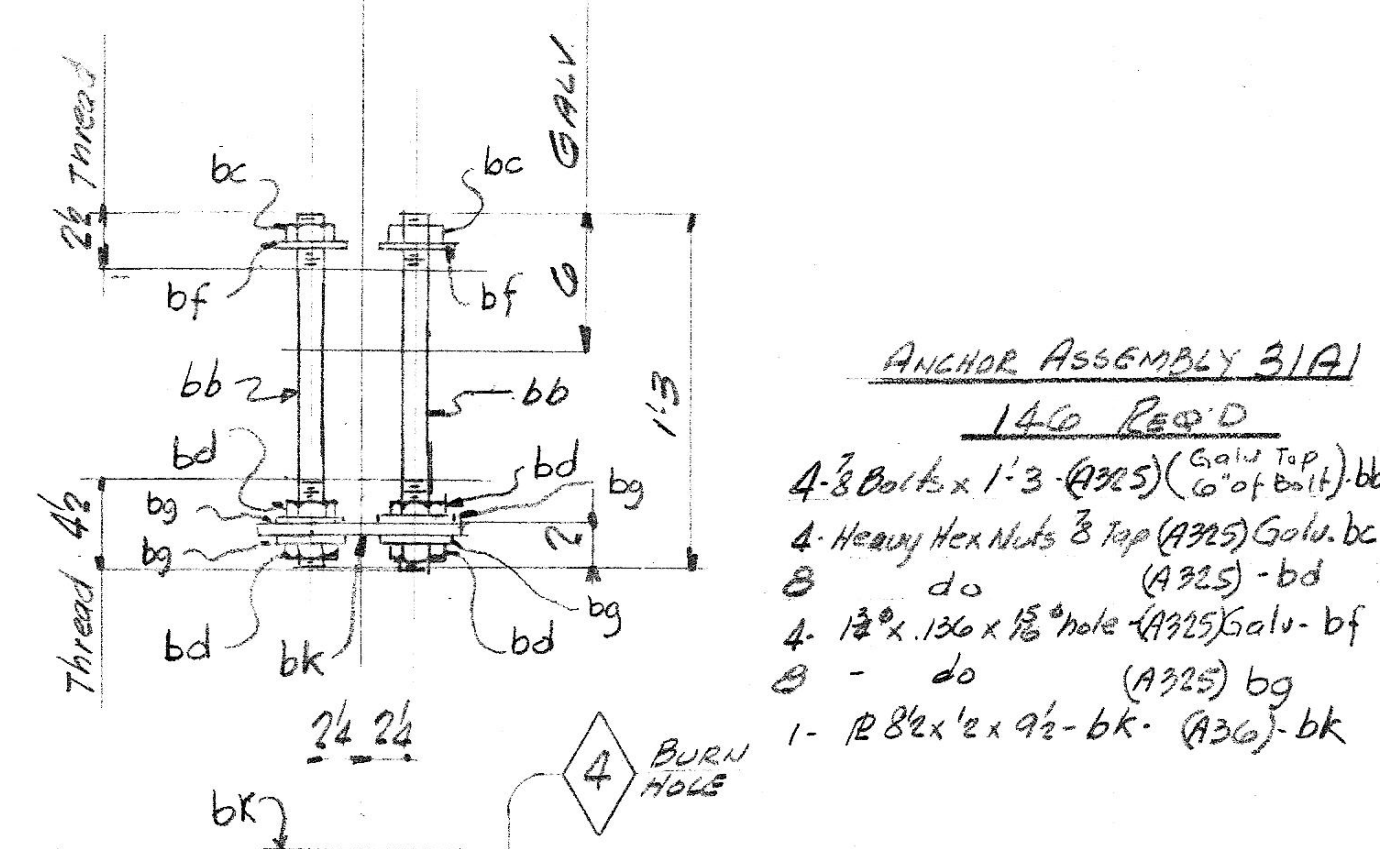 2½ Thread
GALV
bc
bc
bf
bf
6
bb
bb
1'-3
bd
bd
bg
bg
bg
2
bg
Thread 4½
bd
bd
bk
2¼ 2¼
4 BURN HOLE
bk
ANCHOR ASSEMBLY 31A1
146 REQ'D
4-⅞ Bolts x 1'-3 -(A325)(Galv Top 6" of Bolt)-bb
4- Heavy Hex Nuts ⅞ Top (A325) Galv. bc
8 do (A325) -bd
4- 1¾ø x .136 x 15/16 ø hole -(A325) Galv- bf
8 - do (A325) bg
1- PL 8½ x ½ x 9½ - bk- (A36)- bk